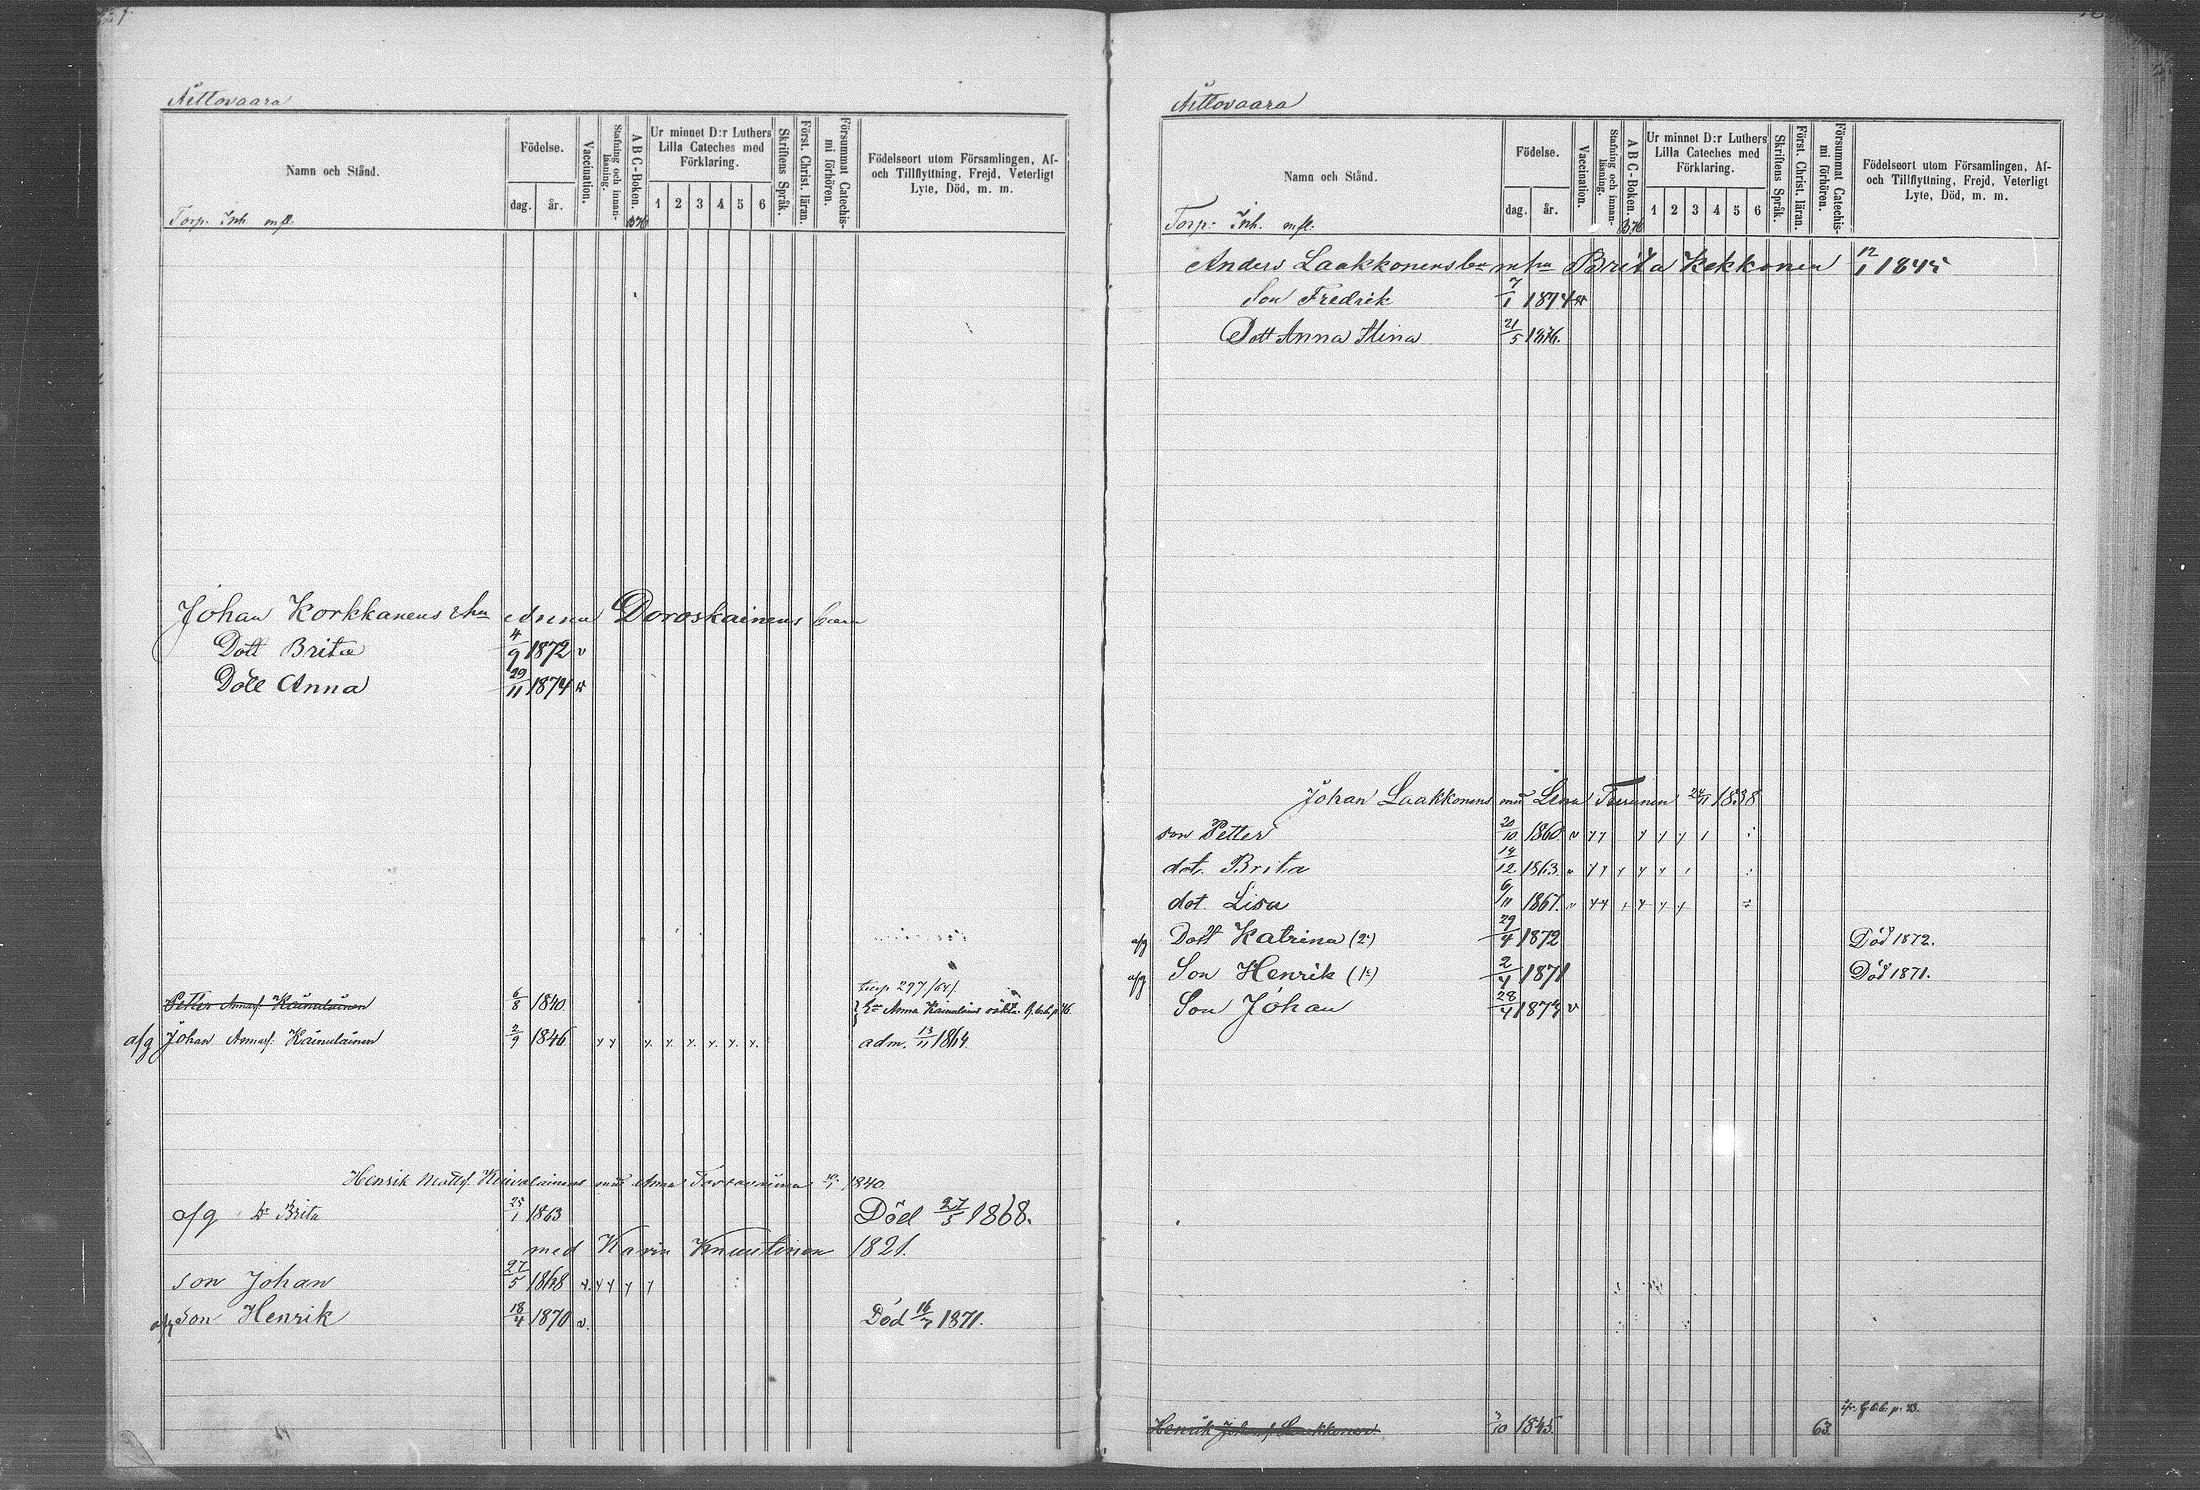 Ailtovaara
Namn och Stånd.
Födelse.
dag. år.
Vaccination.
Stafning och innanläsning.
A B C-Boken.
Ur minnet D:r Luthers Lilla Cateches med Förklaring.
1 2 3 4 5 6
Skriftens Språk.
Först. Christ. läran.
Försummat Catechismi förhören.
Födelseort utom Församlingen, Af- och Tillflyttning, Frejd, Veterligt Lyte, Död, m. m.
Torp. Inh. mfl.
Johan Korkkanens Anna Doroskainens barn
Dott Brita 4/9 1872 v
Dott Anna 29/11 1874 v
297/64/.
Petter Annasf. Kainulainen 6/8 1840. Anna Kainulains
a/g Johan Annasf. Kainulainen 2/9 1846 adm. 13/11 1864
Henrik Mattsf. Anna 1840.
a/g Brita 25/1 1863 Död 27/5 1868.
med Karin Knuutinen 1821.
son Johan 27/5 1868
a/g son Henrik 18/4 1870 v. Död 16/7 1871.
Ailtovaara
Namn och Stånd.
Födelse.
dag. år.
Vaccination.
Stafning och innanläsning.
A B C-Boken.
Ur minnet D:r Luthers Lilla Cateches med Förklaring.
1 2 3 4 5 6
Skriftens Språk.
Först. Christ. läran.
Försummat Catechismi förhören.
Födelseort utom Församlingen, Af- och Tillflyttning, Frejd, Veterligt Lyte, Död, m. m.
Torp. Inh. mfl.
Anders Laakkonens bn m hu Brita Kekkonen 12/1 1845
Son Fredrik 7/1 1874 v
Dott Anna Stina 21/5 1876.
Johan Laakkonens Lena Turunen 24/11 1838
son Petter 20/10 1860. v
dot. Brita 19/12 1863.
dot. Lisa 6/11 1867.
a/g Dott Katrina (2) 29/4 1872 Död 1872.
a/g Son Henrik (1) 2/4 1871 Död 1871.
Son Johan 28/4 1874 v
Henrik Johansf Laakkonen 3/10 1845. 63.